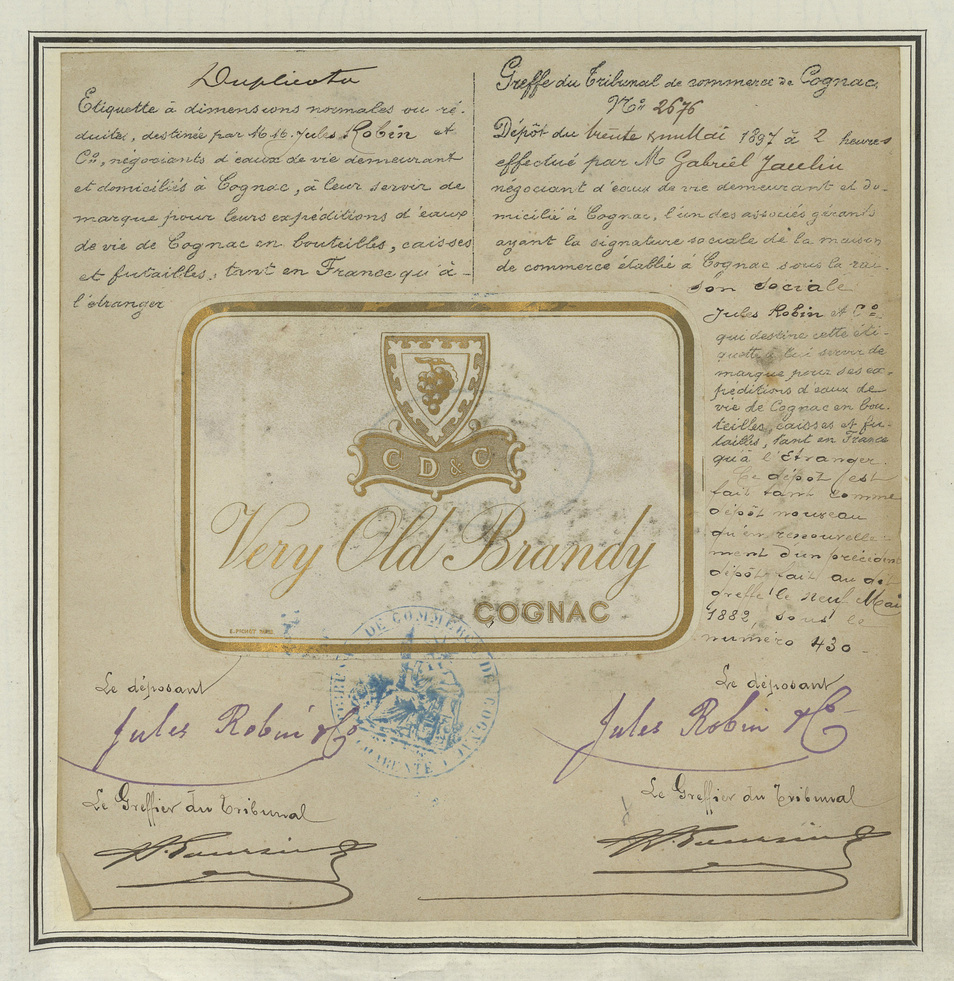 Duplicata
Etiquette à dimensions normales ou ré-
duites, destinée par M.M. Jules Robin et
Cie, négociants d'eaux de vie demeurant
et domiciliés à Cognac, à leur servir de
marque pour leurs expéditions d'eaux
de vie de Cognac en bouteilles, caisses
et futailles, tant en France qu'à-
l'étranger
Greffe du Tribunal de commerce de Cognac,
No 2676
Dépôt du trente Mai 1897 à 2 heures
effectué par M Gabriel Jaulin
négociant d'eaux de vie demeurant et do-
micilié à Cognac, l'un des associés gérants
ayant la signature sociale de la maison
de commerce établie à Cognac sous la rai-
son sociale
Jules Robin et Co
qui destine cette éti-
quette à lui servir de
marque pour ses ex-
péditions d'eaux de
vie de Cognac en bou-
teilles, caisses et fu-
tailles, tant en France
qu'à l'Etranger.
Ce dépôt est
fait tant comme
dépôt nouveau
qu'en renouvelle-
ment d'un précédent
dépôt fait au dit
greffe le neuf Mai
1882, sous le
numéro 430-
C D & C
Very Old Brandy
COGNAC
TRIBUNAL DE COMMERCE DE COGNAC
CHARENTE
Le déposant
Jules Robin & Co
Le Greffier du Tribunal
Le déposant
Jules Robin & Co
Le Greffier du Tribunal